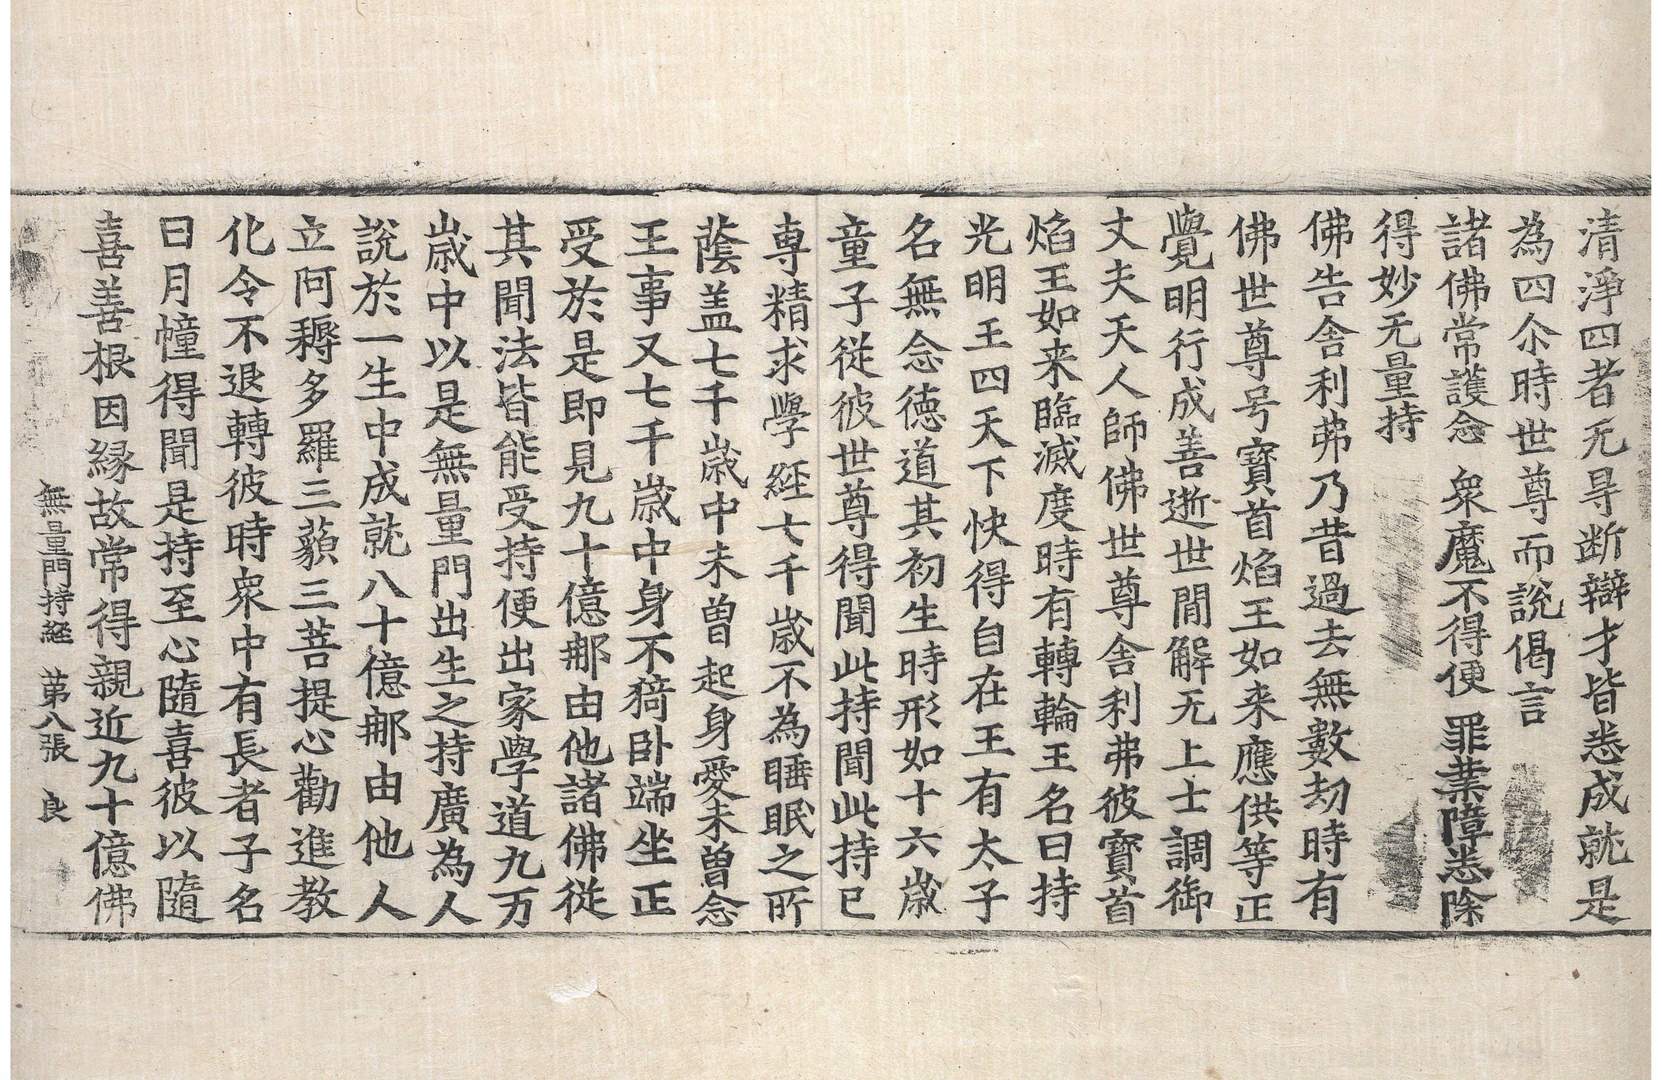 清淨四者无㝵断辯才皆悉成就是
為四尒時世尊而說偈言
諸佛常護念 衆魔不得便 罪業障悉除
得妙无量持
佛告舎利弗乃昔過去無數劫時有
佛世尊号寳首焰王如来應供等正
覺明行成善逝世間解无上士調御
丈夫天人師佛世尊舎利弗彼寳首
焰王如来臨滅度時有轉輪王名曰持
光明王四天下快得自在王有太子
名無念徳道其初生時形如十六歳
童子從彼世尊得聞此持聞此持已
専精求學經七千歳不為睡眠之所
蔭盖七千歳中未曽起身愛未曽念
王事又七千歳中身不猗卧端坐正
受於是即見九十億郍由他諸佛從
其聞法皆能受持便出家學道九万
歳中以是無量門出生之持廣為人
說於一生中成就八十億郍由他人
立阿耨多羅三藐三菩提心勸進教
化令不退轉彼時衆中有長者子名
日月幢得聞是持至心隨喜彼以隨
喜善根因縁故常得親近九十億佛
無量門持経 第八張 良